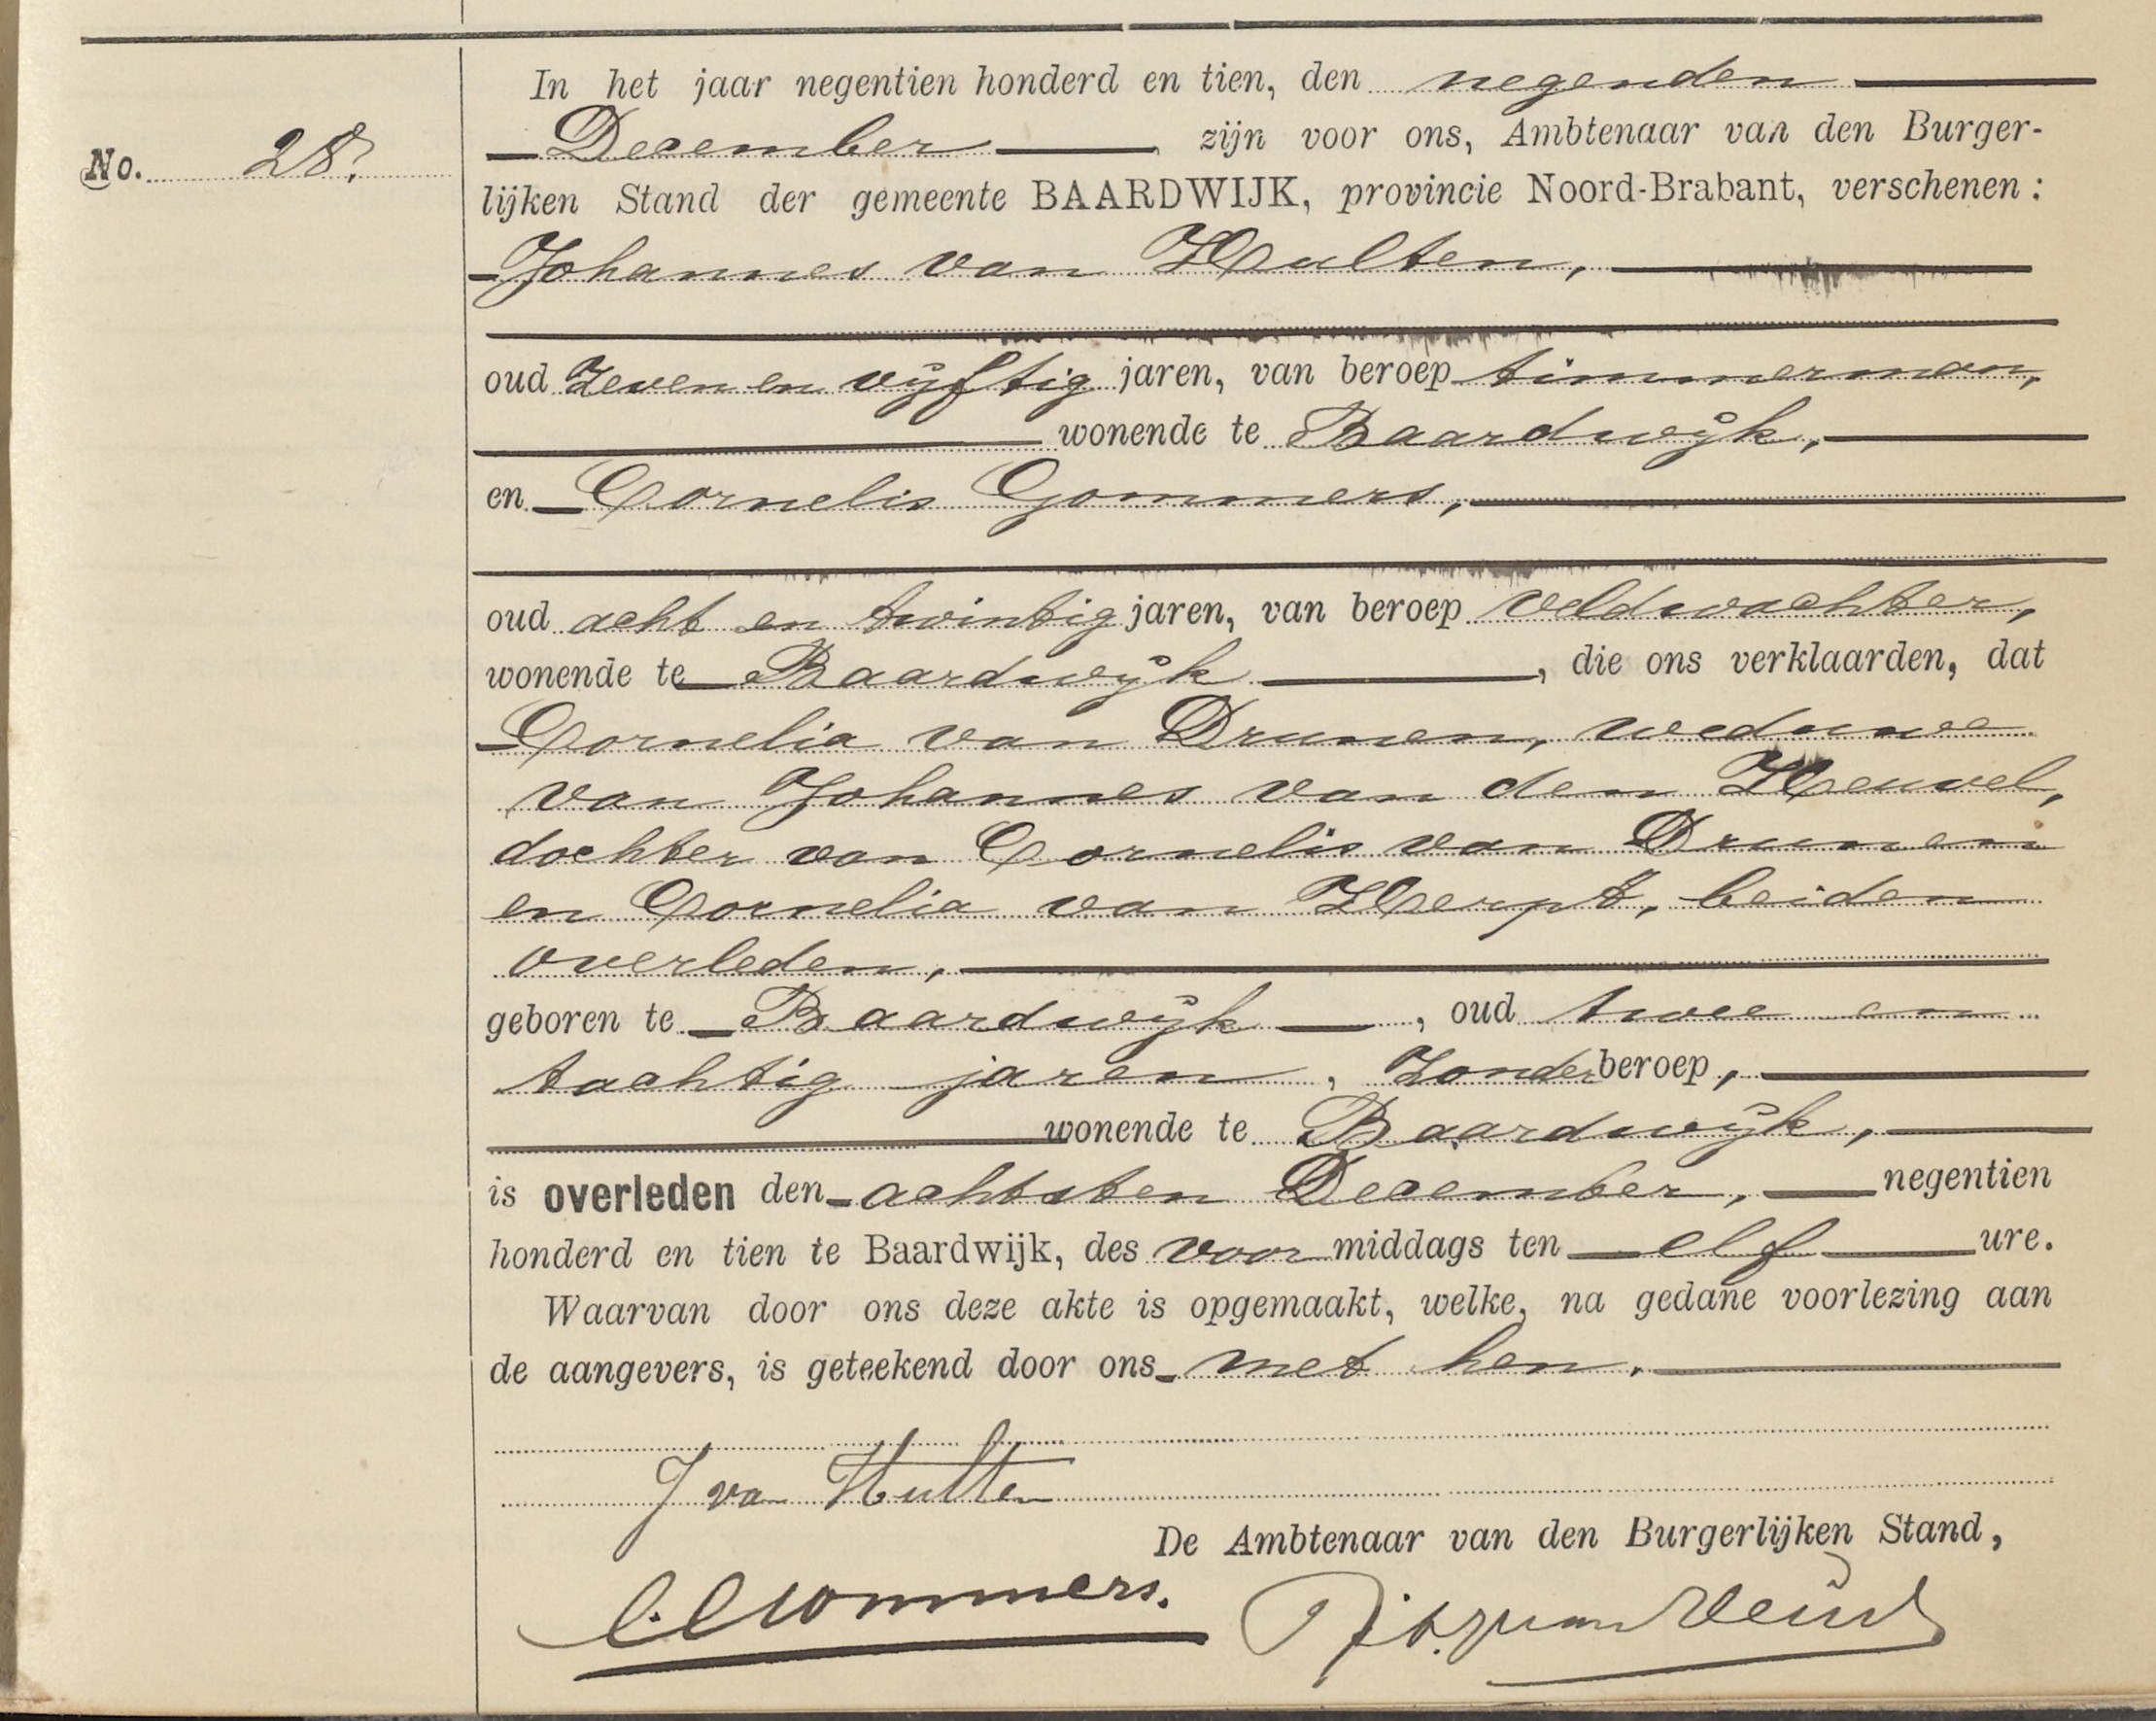 In het jaar negentien honderd en tien, den negenden
No. 28. December zijn voor ons, Ambtenaar van den Burger-
lijken Stand der gemeente BAARDWIJK, provincie Noord-Brabant, verschenen:
Johannes van Hulten,
oud Zeven en vijftig jaren, van beroep timmerman,
wonende te Baardwijk,
en Cornelis Gommers,
oud acht en twintig jaren, van beroep veldwachter,
wonende te Baardwijk, die ons verklaarden, dat
Cornelia van Drunen, weduwe
van Johannes van den Heuvel,
dochter van Cornelis van Drunen
en Cornelia van Herpt, beiden
overleden,
geboren te Baardwijk, oud twee en
tachtig jaren, Zonder beroep,
wonende te Baardwijk,
is overleden den achtsten December, negentien
honderd en tien te Baardwijk, des voormiddags ten elf ure.
Waarvan door ons deze akte is opgemaakt, welke, na gedane voorlezing aan
de aangevers, is geteekend door ons met hen.
J van Hulten
De Ambtenaar van den Burgerlijken Stand,
C. Gommers.